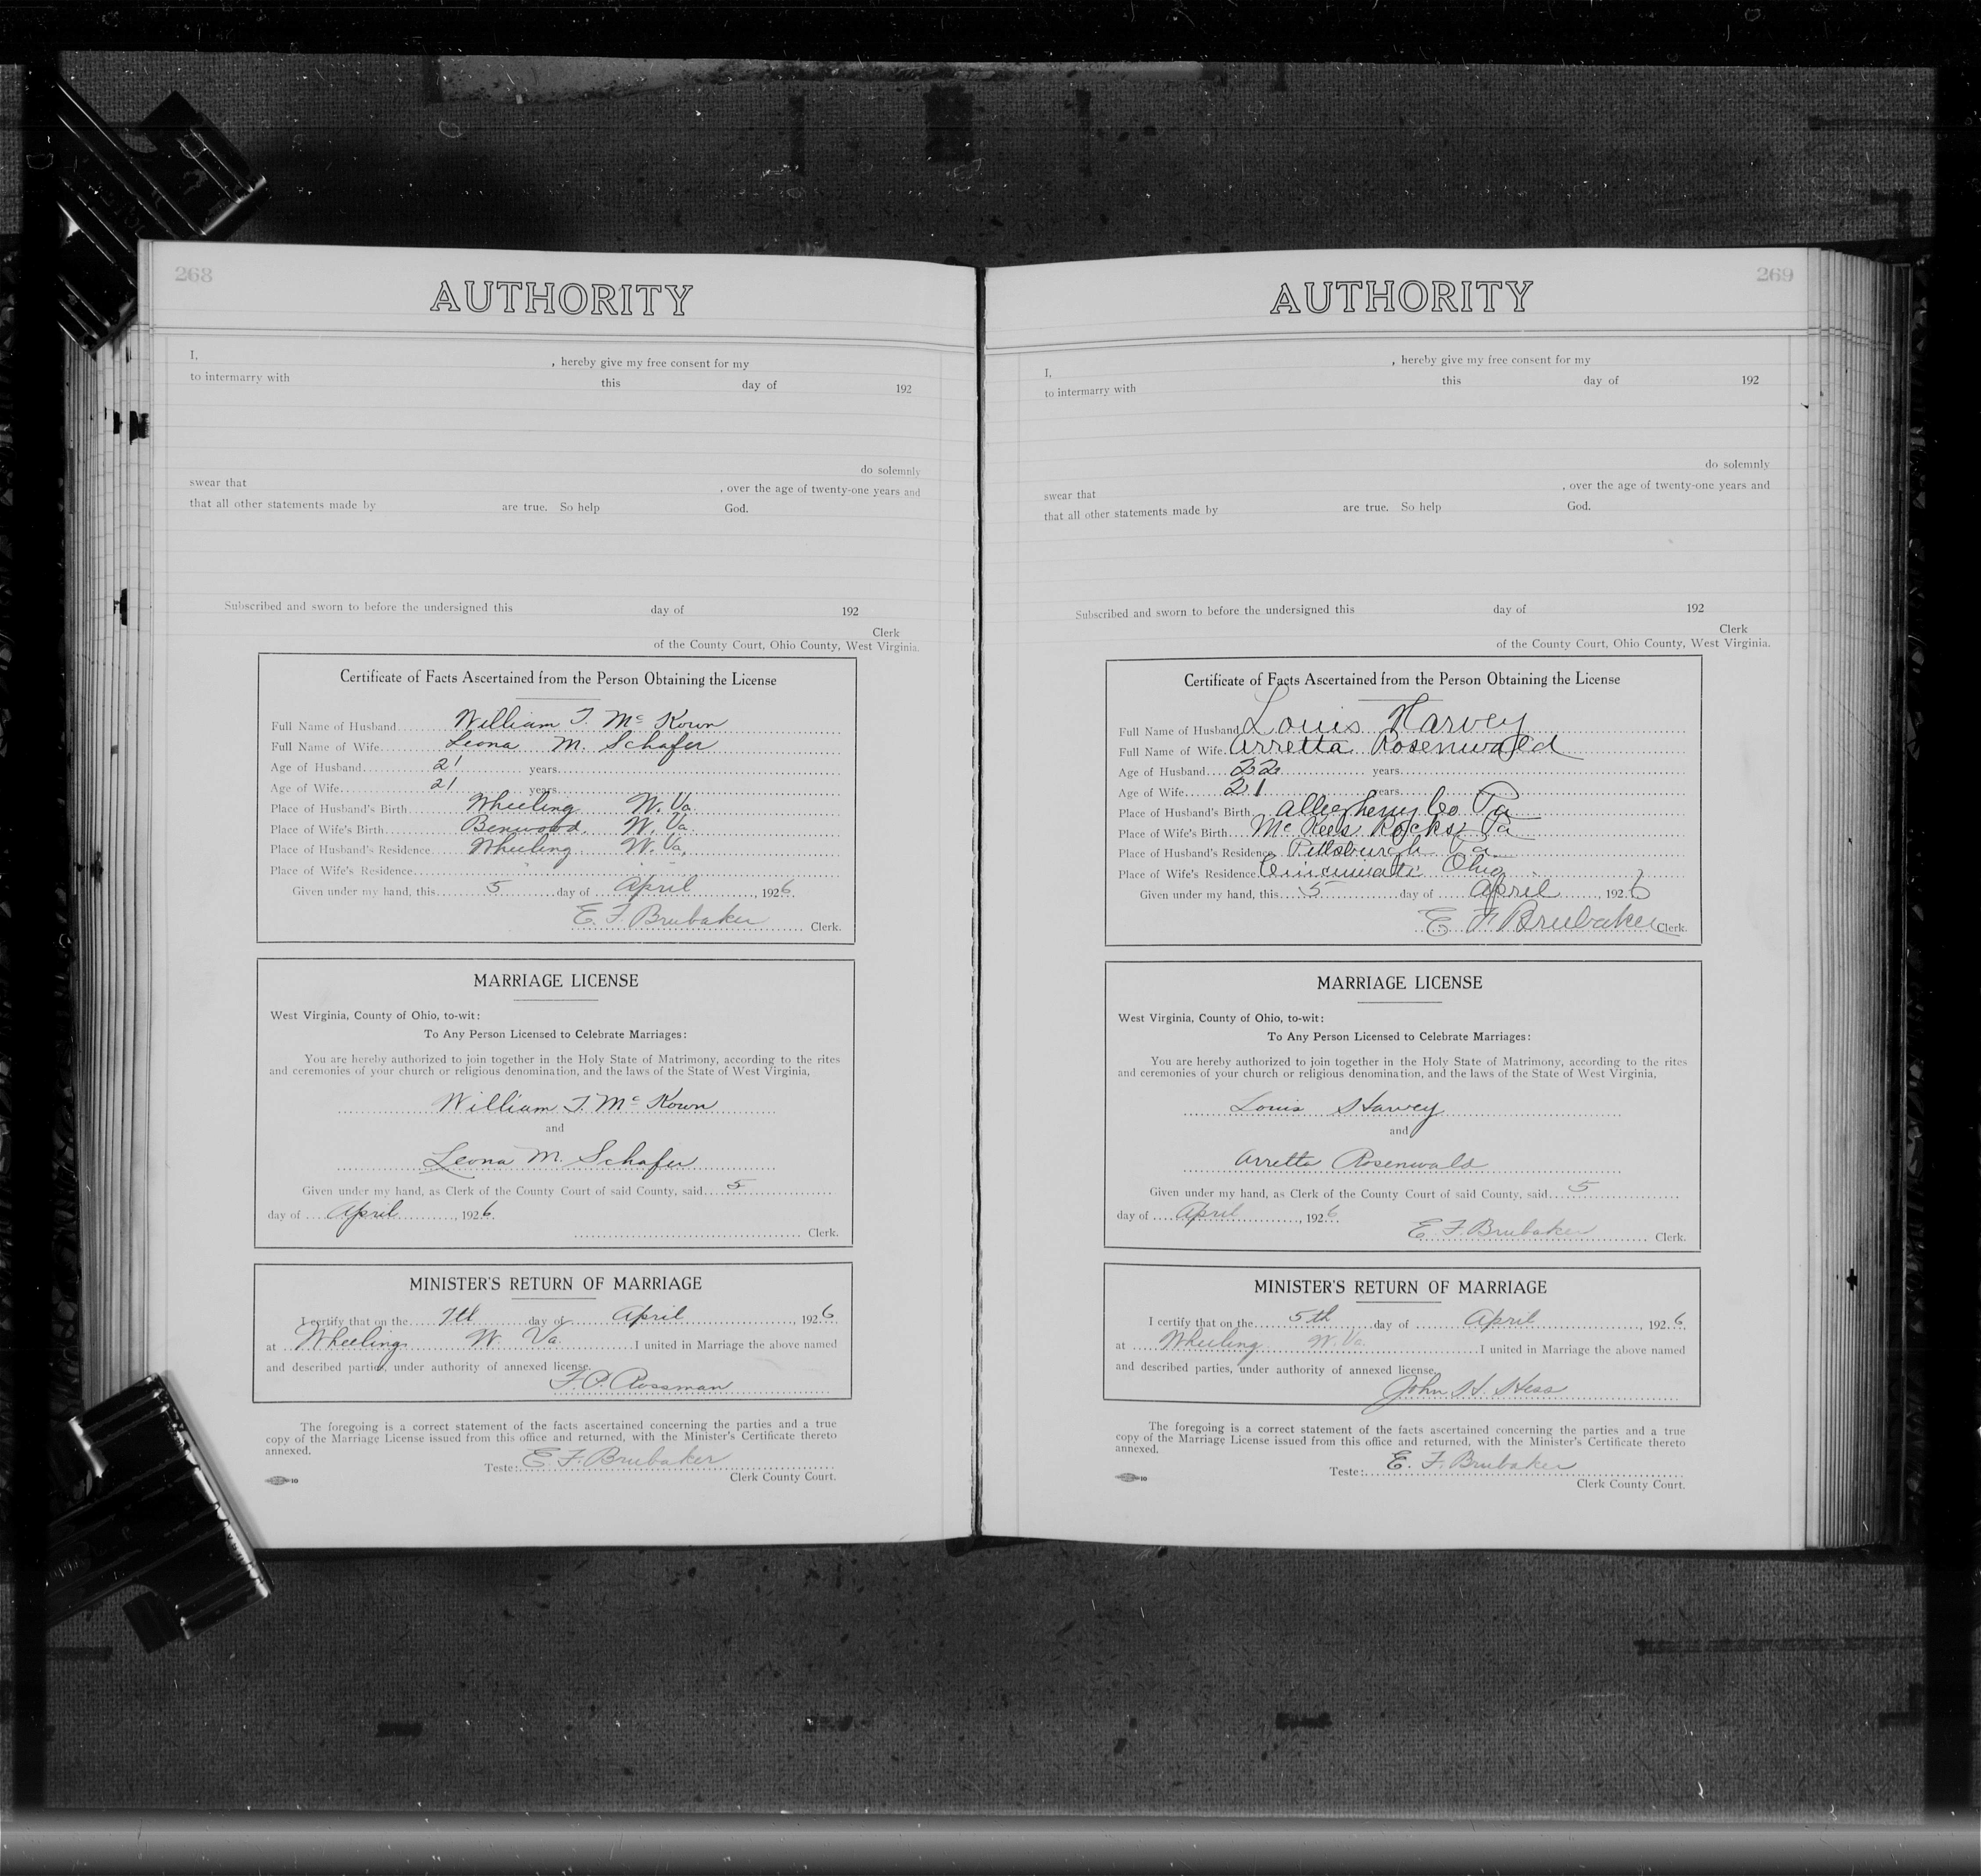 268
AUTHORITY
I, , hereby give my free consent for my
to intermarry with this day of 192
do solemnly
swear that , over the age of twenty-one years and
that all other statements made by are true. So help God.
Subscribed and sworn to before the undersigned this day of 192
Clerk
of the County Court, Ohio County, West Virginia.
Certificate of Facts Ascertained from the Person Obtaining the License
Full Name of Husband William T. Mc Kown
Full Name of Wife Leona M. Schafer
Age of Husband 21 years
Age of Wife 21 years
Place of Husband's Birth Wheeling W. Va.
Place of Wife's Birth Benwood W. Va.
Place of Husband's Residence Wheeling W. Va.
Place of Wife's Residence " " "
Given under my hand, this 5 day of April, 1926
E. F. Brubaker Clerk.
MARRIAGE LICENSE
West Virginia, County of Ohio, to-wit:
To Any Person Licensed to Celebrate Marriages:
You are hereby authorized to join together in the Holy State of Matrimony, according to the rites
and ceremonies of your church or religious denomination, and the laws of the State of West Virginia,
William T. Mc Kown
and
Leona M. Schafer
Given under my hand, as Clerk of the County Court of said County, said 5
day of April, 1926.
Clerk.
MINISTER'S RETURN OF MARRIAGE
I certify that on the 7th day of April, 1926
at Wheeling W. Va. I united in Marriage the above named
and described parties, under authority of annexed license.
F. P. Rossman
The foregoing is a correct statement of the facts ascertained concerning the parties and a true
copy of the Marriage License issued from this office and returned, with the Minister's Certificate thereto
annexed.
Teste: E. F. Brubaker
Clerk County Court.
10
269
AUTHORITY
I, , hereby give my free consent for my
to intermarry with this day of 192
do solemnly
swear that , over the age of twenty-one years and
that all other statements made by are true. So help God.
Subscribed and sworn to before the undersigned this day of 192
Clerk
of the County Court, Ohio County, West Virginia.
Certificate of Facts Ascertained from the Person Obtaining the License
Full Name of Husband Louis Harvey
Full Name of Wife Arretta Rosenwald
Age of Husband 22 years
Age of Wife 21 years
Place of Husband's Birth Allegheny Co Pa
Place of Wife's Birth Mc Kees Rocks Pa
Place of Husband's Residence Pittsburgh Pa
Place of Wife's Residence Cincinnati Ohio
Given under my hand, this 5 day of April, 1926
E F Brubaker Clerk.
MARRIAGE LICENSE
West Virginia, County of Ohio, to-wit:
To Any Person Licensed to Celebrate Marriages:
You are hereby authorized to join together in the Holy State of Matrimony, according to the rites
and ceremonies of your church or religious denomination, and the laws of the State of West Virginia,
Louis Harvey
and
Arretta Rosenwald
Given under my hand, as Clerk of the County Court of said County, said 5
day of April, 1926
E. F. Brubaker Clerk.
MINISTER'S RETURN OF MARRIAGE
I certify that on the 5th day of April, 1926
at Wheeling W. Va. I united in Marriage the above named
and described parties, under authority of annexed license.
John H. Hess
The foregoing is a correct statement of the facts ascertained concerning the parties and a true
copy of the Marriage License issued from this office and returned, with the Minister's Certificate thereto
annexed.
Teste: E. F. Brubaker
Clerk County Court.
10